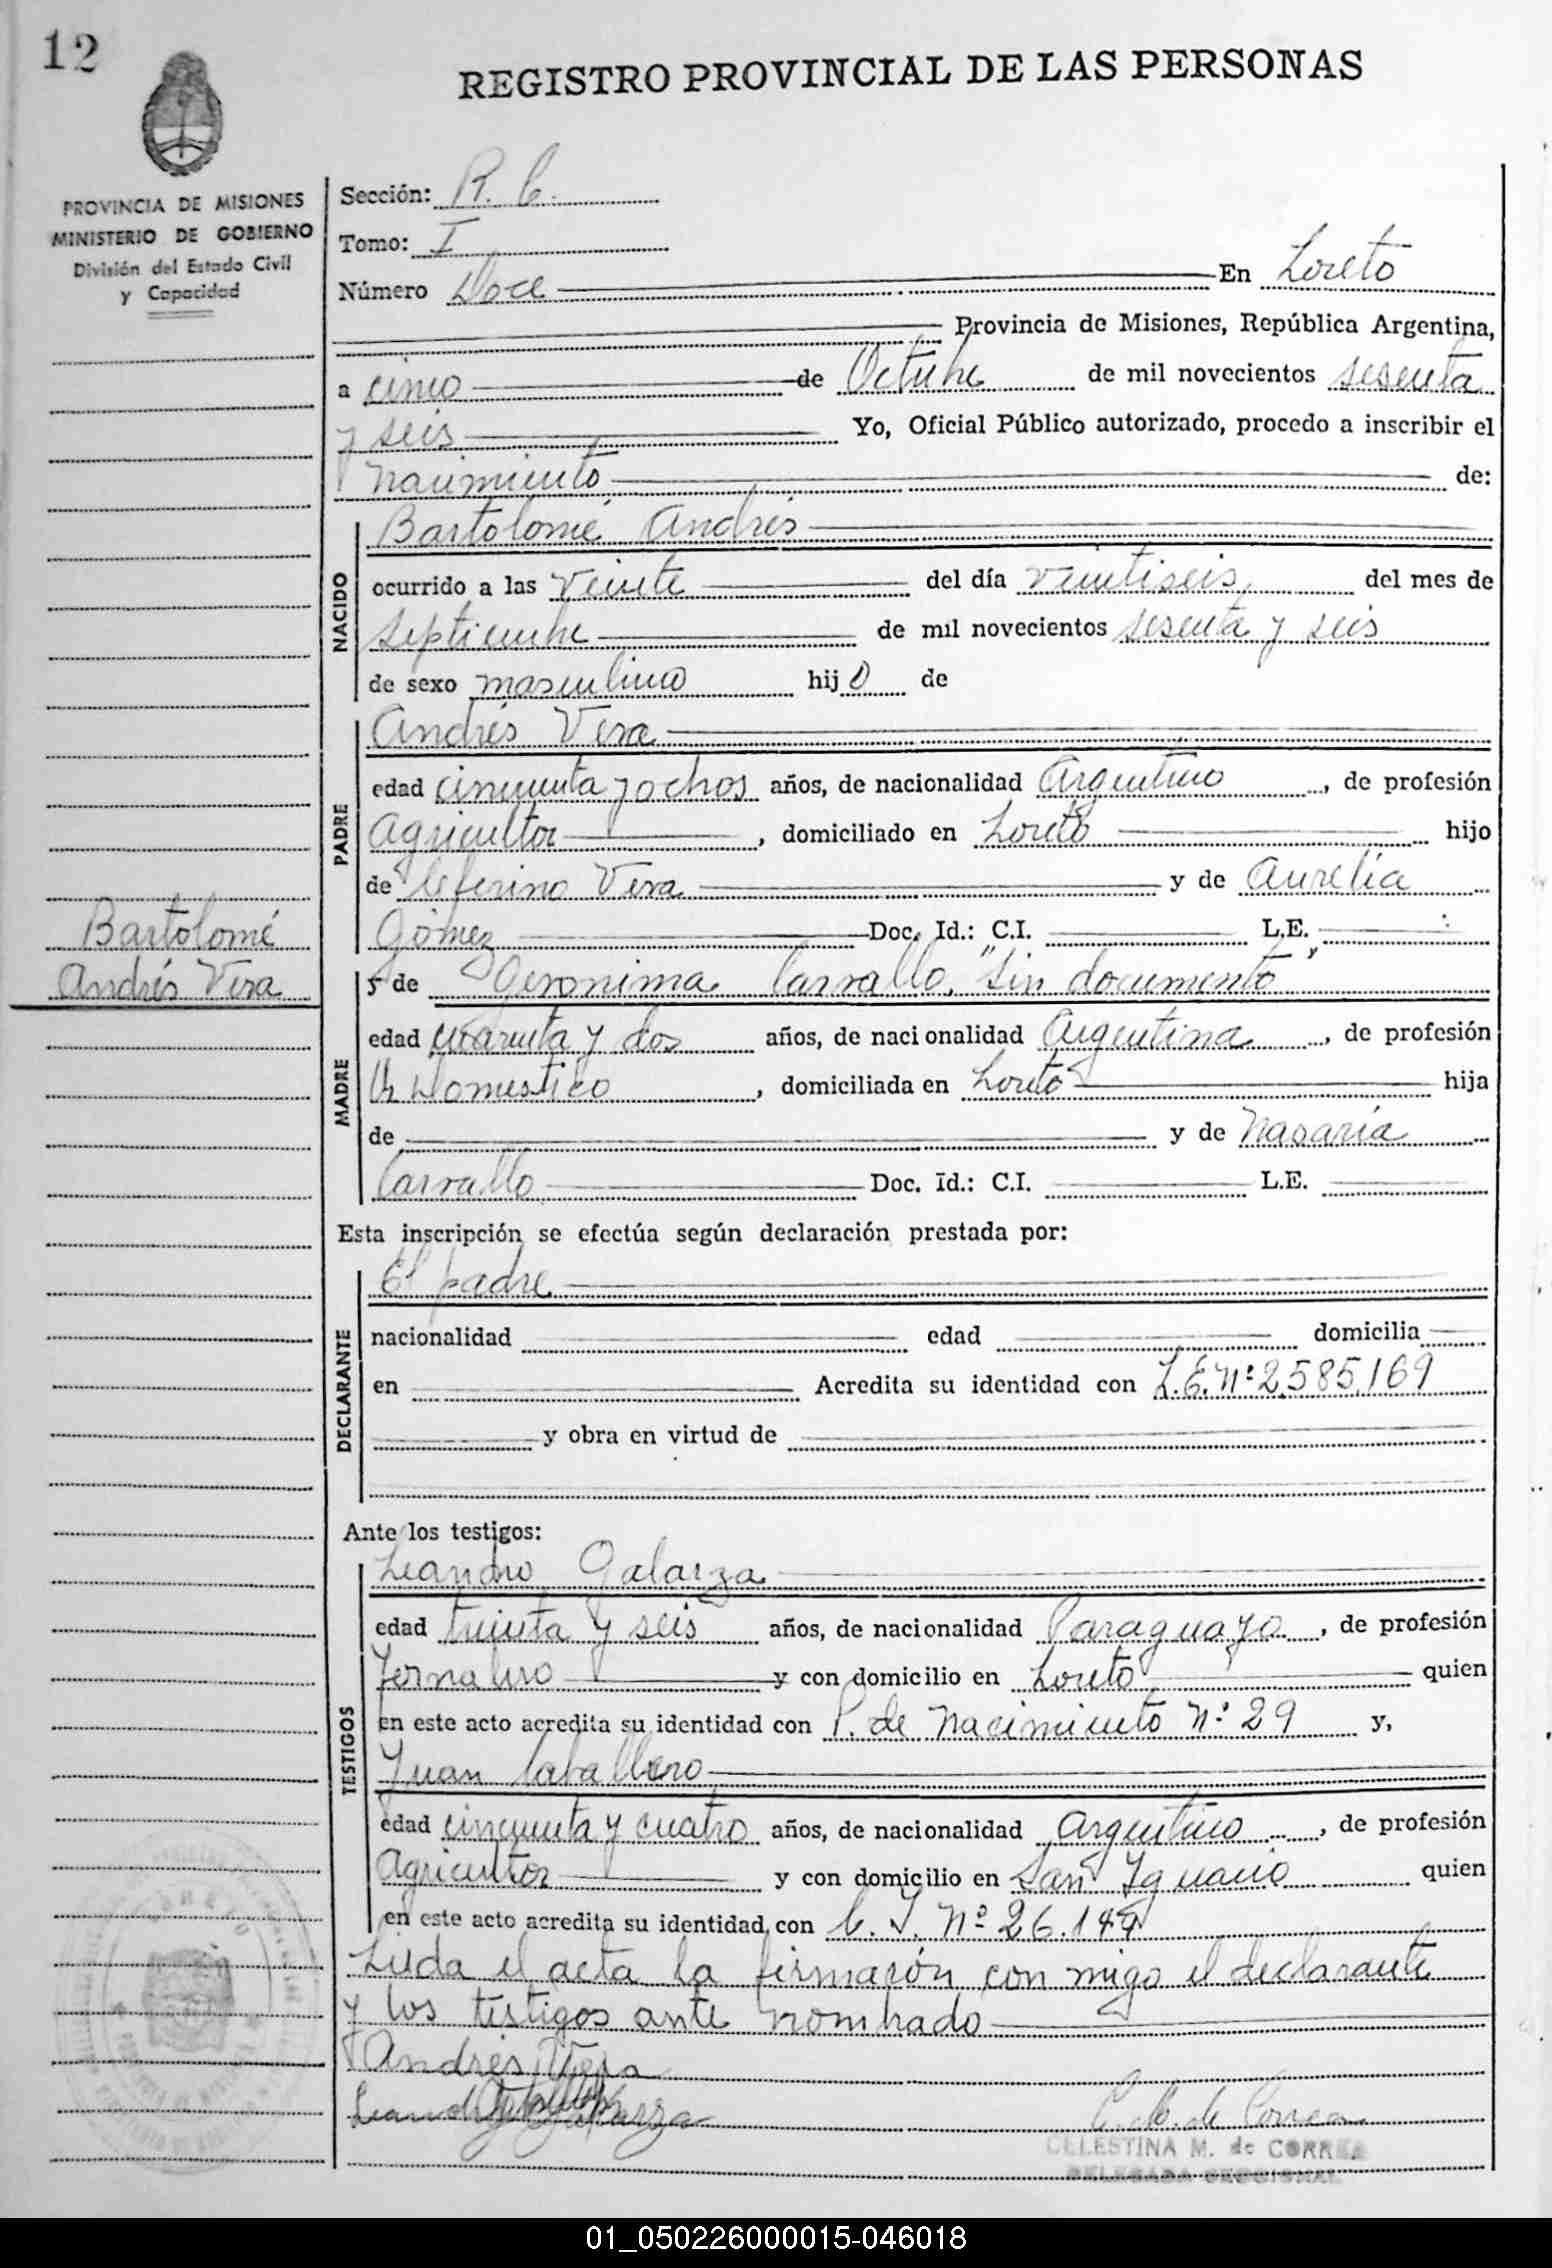 12
REGISTRO PROVINCIAL DE LAS PERSONAS
PROVINCIA DE MISIONES
MINISTERIO DE GOBIERNO
División del Estado Civil
y Capacidad
Sección: R. C.
Tomo: I
Número Doce En Loreto
Provincia de Misiones, República Argentina,
a cinco de Octubre de mil novecientos sesenta
y seis Yo, Oficial Público autorizado, procedo a inscribir el
Nacimiento de:
NACIDO
Bartolomé Andrés
ocurrido a las veinte del día veintiseis del mes de
Septiembre de mil novecientos sesenta y seis
de sexo masculino hijo de
PADRE
Andrés Vera
edad cincuenta y ochos años, de nacionalidad Argentino, de profesión
Agricultor, domiciliado en Loreto hijo
de Ceferino Vera y de Aurelia
Gómez Doc. Id.: C.I. L.E.
Bartolomé
Andrés Vera
MADRE
y de Geronima Carvallo, "Sin documento"
edad cuarenta y dos años, de nacionalidad Argentina, de profesión
Q. Domestico, domiciliada en Loreto hija
de y de Nasaria
Carvallo Doc. Id.: C.I. L.E.
Esta inscripción se efectúa según declaración prestada por:
DECLARANTE
El padre
nacionalidad edad domicilia
en Acredita su identidad con L.E. Nº 2.585.169
y obra en virtud de
Ante los testigos:
TESTIGOS
Leandro Galarza
edad treinta y seis años, de nacionalidad Paraguayo, de profesión
Jornalero y con domicilio en Loreto quien
en este acto acredita su identidad con P. de Nacimiento Nº 29 y,
Juan Caballero
edad cincuenta y cuatro años, de nacionalidad Argentino, de profesión
Agricultor y con domicilio en San Ignacio quien
en este acto acredita su identidad con C. I. Nº 26.149
Lieda el acta la firmarón con migo el declarante
y los testigos ante nombrado
Andres Vera
Leandro Galarza
C. M. de Correa
CELESTINA M. de CORREA
DELEGADA SECCIONAL
01_050226000015-046018